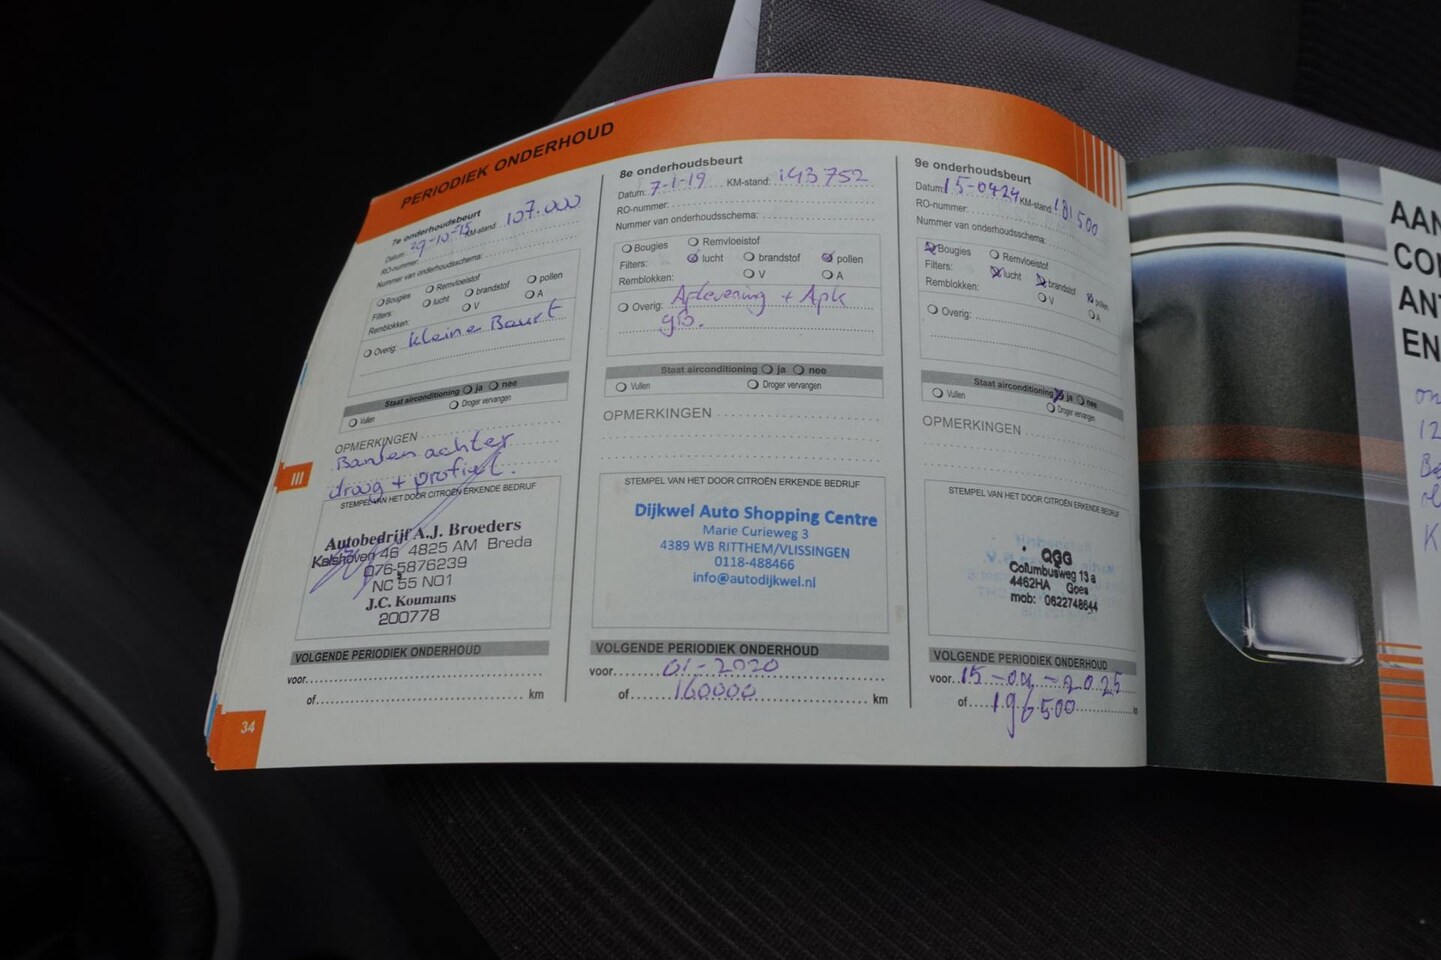 PERIODIEK ONDERHOUD
7e onderhoudsbeurt
Datum: 29-10-15 KM-stand: 107.000
RO-nummer:
Nummer van onderhoudsschema:
Bougies Remvloeistof
Filters: lucht brandstof pollen
Remblokken: V A
Overig: kleine Beurt
Staat airconditioning ja nee
Vullen Droger vervangen
OPMERKINGEN
Banden achter
droog + profiel.
STEMPEL VAN HET DOOR CITROËN ERKENDE BEDRIJF
Autobedrijf A.J. Broeders
Kalshoven 46 4825 AM Breda
076-5876239
NC 55 NO1
J.C. Koumans
200778
VOLGENDE PERIODIEK ONDERHOUD
voor
of km
III
34
8e onderhoudsbeurt
Datum: 7-1-19 KM-stand: 143752
RO-nummer:
Nummer van onderhoudsschema:
Bougies Remvloeistof
Filters: lucht brandstof pollen
Remblokken: V A
Overig: Aflevering + Apk
Staat airconditioning ja nee
Vullen Droger vervangen
OPMERKINGEN
STEMPEL VAN HET DOOR CITROËN ERKENDE BEDRIJF
Dijkwel Auto Shopping Centre
Marie Curieweg 3
4389 WB RITTHEM/VLISSINGEN
0118-488466
info@autodijkwel.nl
VOLGENDE PERIODIEK ONDERHOUD
voor 01-2020
of 160000 km
9e onderhoudsbeurt
Datum: 15-0424 KM-stand: 181500
RO-nummer:
Nummer van onderhoudsschema:
Bougies Remvloeistof
Filters: lucht brandstof pollen
Remblokken: V A
Overig:
Staat airconditioning ja nee
Vullen Droger vervangen
OPMERKINGEN
STEMPEL VAN HET DOOR CITROËN ERKENDE BEDRIJF
QGG
Columbusweg 13 a
4462HA Goes
mob: 0622748644
VOLGENDE PERIODIEK ONDERHOUD
voor 15-04-2025
of 196500
AAN
CO
ANT
EN